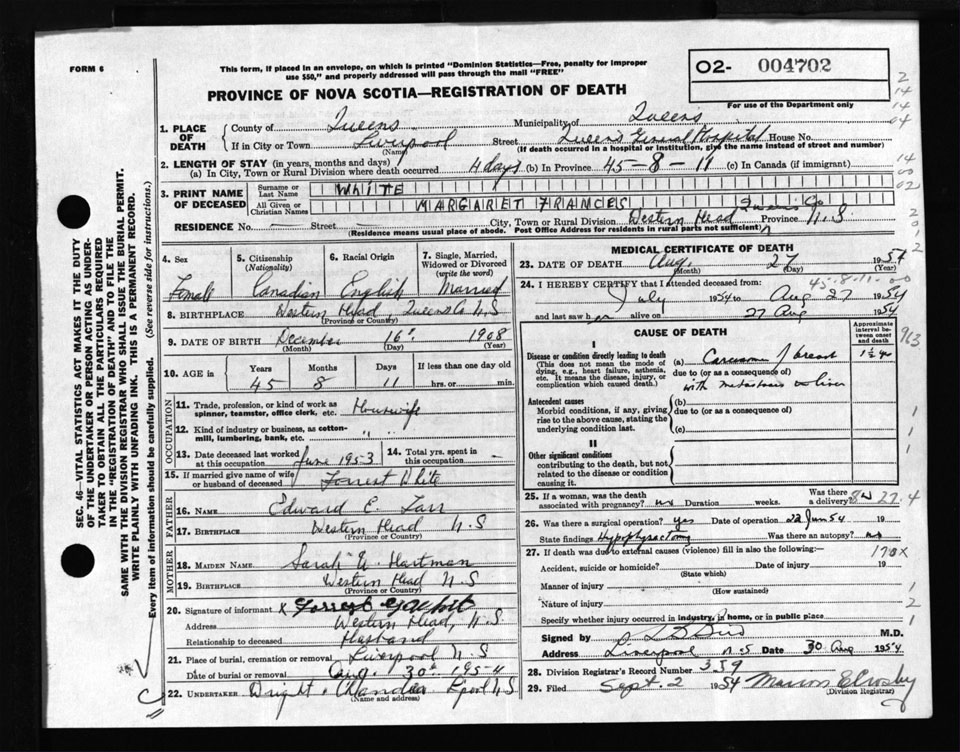 FORM 6
This form, if placed in an envelope, on which is printed "Dominion Statistics—Free, penalty for improper
use $50," and properly addressed will pass through the mail "FREE"
O2- 004702
For use of the Department only
PROVINCE OF NOVA SCOTIA—REGISTRATION OF DEATH
1. PLACE OF DEATH { County of Queens Municipality of Queens
If in City or Town Liverpool (Name) Street Queens General Hospital House No.
(If death occurred in a hospital or institution, give the name instead of street and number)
2. LENGTH OF STAY (in years, months and days)
(a) In City, Town or Rural Division where death occurred 4 days (b) In Province 45-8-11 (c) In Canada (if immigrant)
3. PRINT NAME OF DECEASED { Surname or Last Name WHITE
All Given or Christian Names MARGARET FRANCES
RESIDENCE No. — Street — City, Town or Rural Division Western Head Queens Co Province N.S.
(Residence means usual place of abode. Post Office Address for residents in rural parts not sufficient)
4. Sex Female
5. Citizenship (Nationality) Canadian
6. Racial Origin English
7. Single, Married, Widowed or Divorced (write the word) Married
8. BIRTHPLACE Western Head, Queens Co N.S
(Province or Country)
9. DATE OF BIRTH December 16 1908
(Month) (Day) (Year)
10. AGE in Years 45 Months 8 Days 11 If less than one day old hrs. or min.
OCCUPATION
11. Trade, profession or kind of work as spinner, teamster, office clerk, etc. Housewife
12. Kind of industry or business, as cotton-mill, lumbering, bank, etc. " "
13. Date deceased last worked at this occupation June 1953
14. Total yrs. spent in this occupation —
15. If married give name of wife or husband of deceased Forrest White
FATHER
16. NAME Edward E.
17. BIRTHPLACE Western Head N.S
(Province or Country)
MOTHER
18. MAIDEN NAME Sarah Hartman
19. BIRTHPLACE Western Head N.S
(Province or Country)
20. Signature of informant X Forrest
Address Western Head, N.S.
Relationship to deceased Husband
21. Place of burial, cremation or removal Liverpool N.S
Date of burial or removal Aug. 30 1954
22. UNDERTAKER Wright Chandler Lpool N.S
(Name and address)
MEDICAL CERTIFICATE OF DEATH
23. DATE OF DEATH Aug. 27 1954
(Month) (Day) (Year)
45-8-11-00
24. I HEREBY CERTIFY that I attended deceased from:
July 1954 to Aug 27 1954
and last saw her alive on 27 Aug 1954
CAUSE OF DEATH
Approximate interval between onset and death
I
Disease or condition directly leading to death
(This does not mean the mode of dying, e.g., heart failure, asthenia, etc. It means the disease, injury, or complication which caused death.)
(a) Carcinoma of breast 1½ yr
due to (or as a consequence of)
with metastases to liver
Antecedent causes
Morbid conditions, if any, giving rise to the above cause, stating the underlying condition last.
(b)
due to (or as a consequence of)
(c)
II
Other significant conditions
contributing to the death, but not related to the disease or condition causing it.
25. If a woman, was the death associated with pregnancy? no Duration weeks. Was there a delivery?
26. Was there a surgical operation? yes Date of operation 22 Jun 54 19
State findings Hypophysectomy Was there an autopsy? no
27. If death was due to external causes (violence) fill in also the following:— 170X
Accident, suicide or homicide? Date of injury 19
(State which)
Manner of injury
(How sustained)
Nature of injury
Specify whether injury occurred in industry, in home, or in public place
Signed by M.D.
Address Liverpool N.S Date 30 Aug 1954
28. Division Registrar's Record Number 359
29. Filed Sept. 2 1954 Marion
(Division Registrar)
SEC. 46—VITAL STATISTICS ACT MAKES IT THE DUTY
OF THE UNDERTAKER OR PERSON ACTING AS UNDER-
TAKER TO OBTAIN ALL THE PARTICULARS REQUIRED
IN THE "REGISTRATION OF DEATH" AND TO FILE THE
SAME WITH THE DIVISION REGISTRAR WHO SHALL ISSUE THE BURIAL PERMIT.
WRITE PLAINLY WITH UNFADING INK. THIS IS A PERMANENT RECORD.
Every item of information should be carefully supplied. (See reverse side for instructions.)